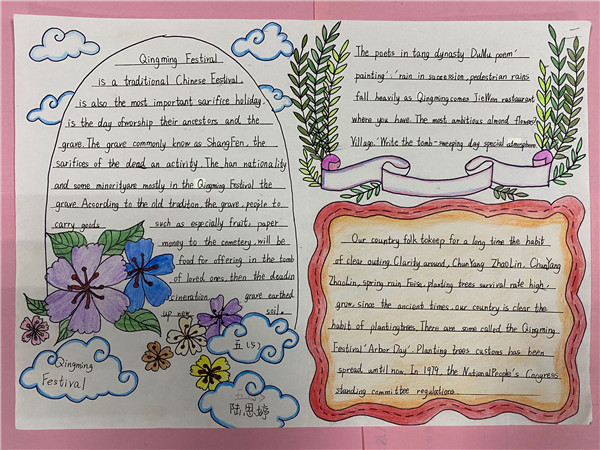 Qingming Festival
is a traditional Chinese Festival.
is also the most important sarifice holiday.
is the day ofworship their ancestors and the
grave. The grave commonly know as ShangFen, the
sarifices of the dead an activity. The han nationality
and some minorityare mostly in the Qingming Festival the
grave. According to the old traditon, the grave, people to
carry goods such as especially fruit, paper
money to the cemetery, will be
food for offering in the tomb
of loved ones, then the deadin
cineration, grave earthed
up new soil.
五(5)
Qingming
Festival
陆思婷
The poets in tang dynasty DuMu poem'
painting': 'rain in sucession, pedestrian rains
fall heavily as Qingmingcomes JieWen restaurant
where you have. The most ambitious almond flower?
Village.' Write the tomb-sweeping day special atmosphere.
Our country folk tokeep for a long time the habit
of clear outing. Clarity around, ChunYang ZhaoLin, ChunYang
ZhaoLin, spring rain Feisa, planting trees survival rate high,
grow, since the ancient times, our country is clear the
habit of plantingtrees. There are some called the Qingming
Festival' Arbor Day'. Planting trees customs has been
spread until now. In 1979, the NationalPeople's Congress
standing committee regulations.